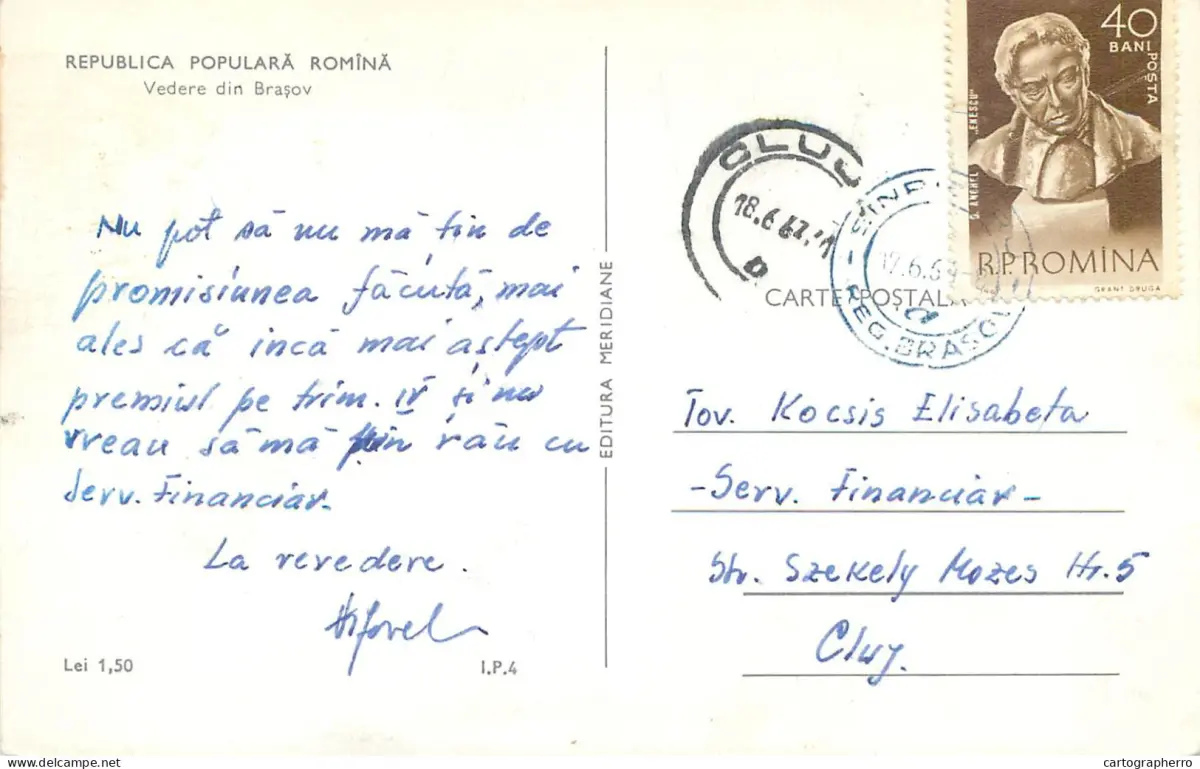 REPUBLICA POPULARĂ ROMÎNĂ
Vedere din Brașov
Nu pot să nu mă țin de
promisiunea făcută, mai
ales că incă mai aștept
premiul pe trim. IV și nu
vreau să mă țin rău cu
Serv. Financiar.
La revedere.
Lei 1,50
I.P.4
EDITURA MERIDIANE
40
BANI
POSTA
G. ANGHEL „ENESCU"
R.P.ROMÎNA
GRANT DRUGA
CLUJ
18.6.6
REG. BRAȘOV
CARTE POȘTALĂ
Tov. Kocsis Elisabeta
-Serv. Financiar-
Str. Szekely Mozes Nr. 5
Cluj.
cartographerro